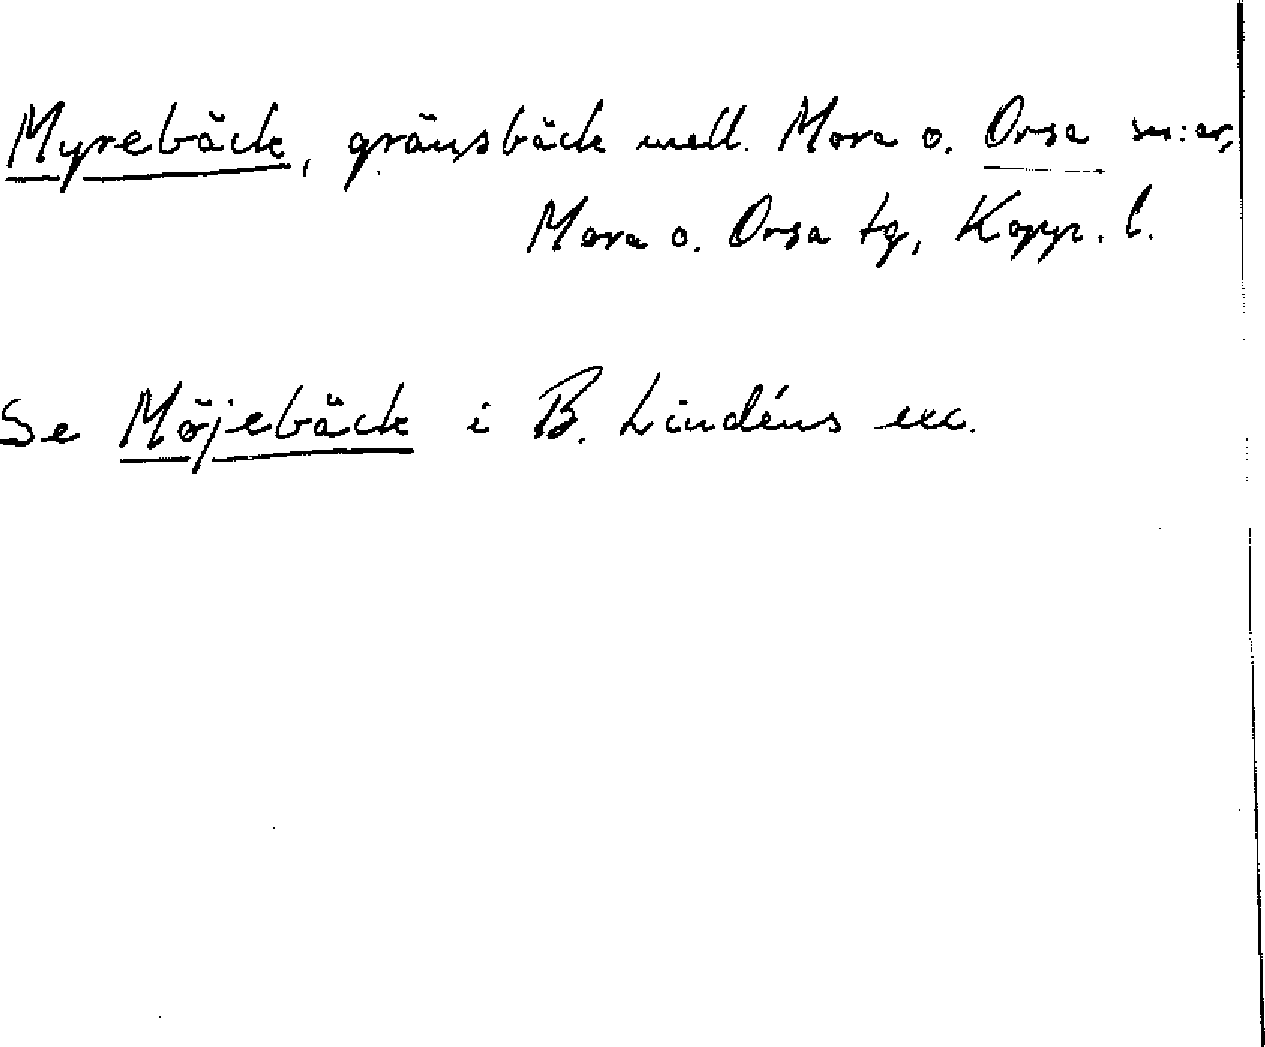 Myrebäck, gränsbäck mell. Mora o. Orsa sn:ar,
Mora o. Orsa tg, Kopp. l.
Se Möjebäck i B. Lindéns exc.